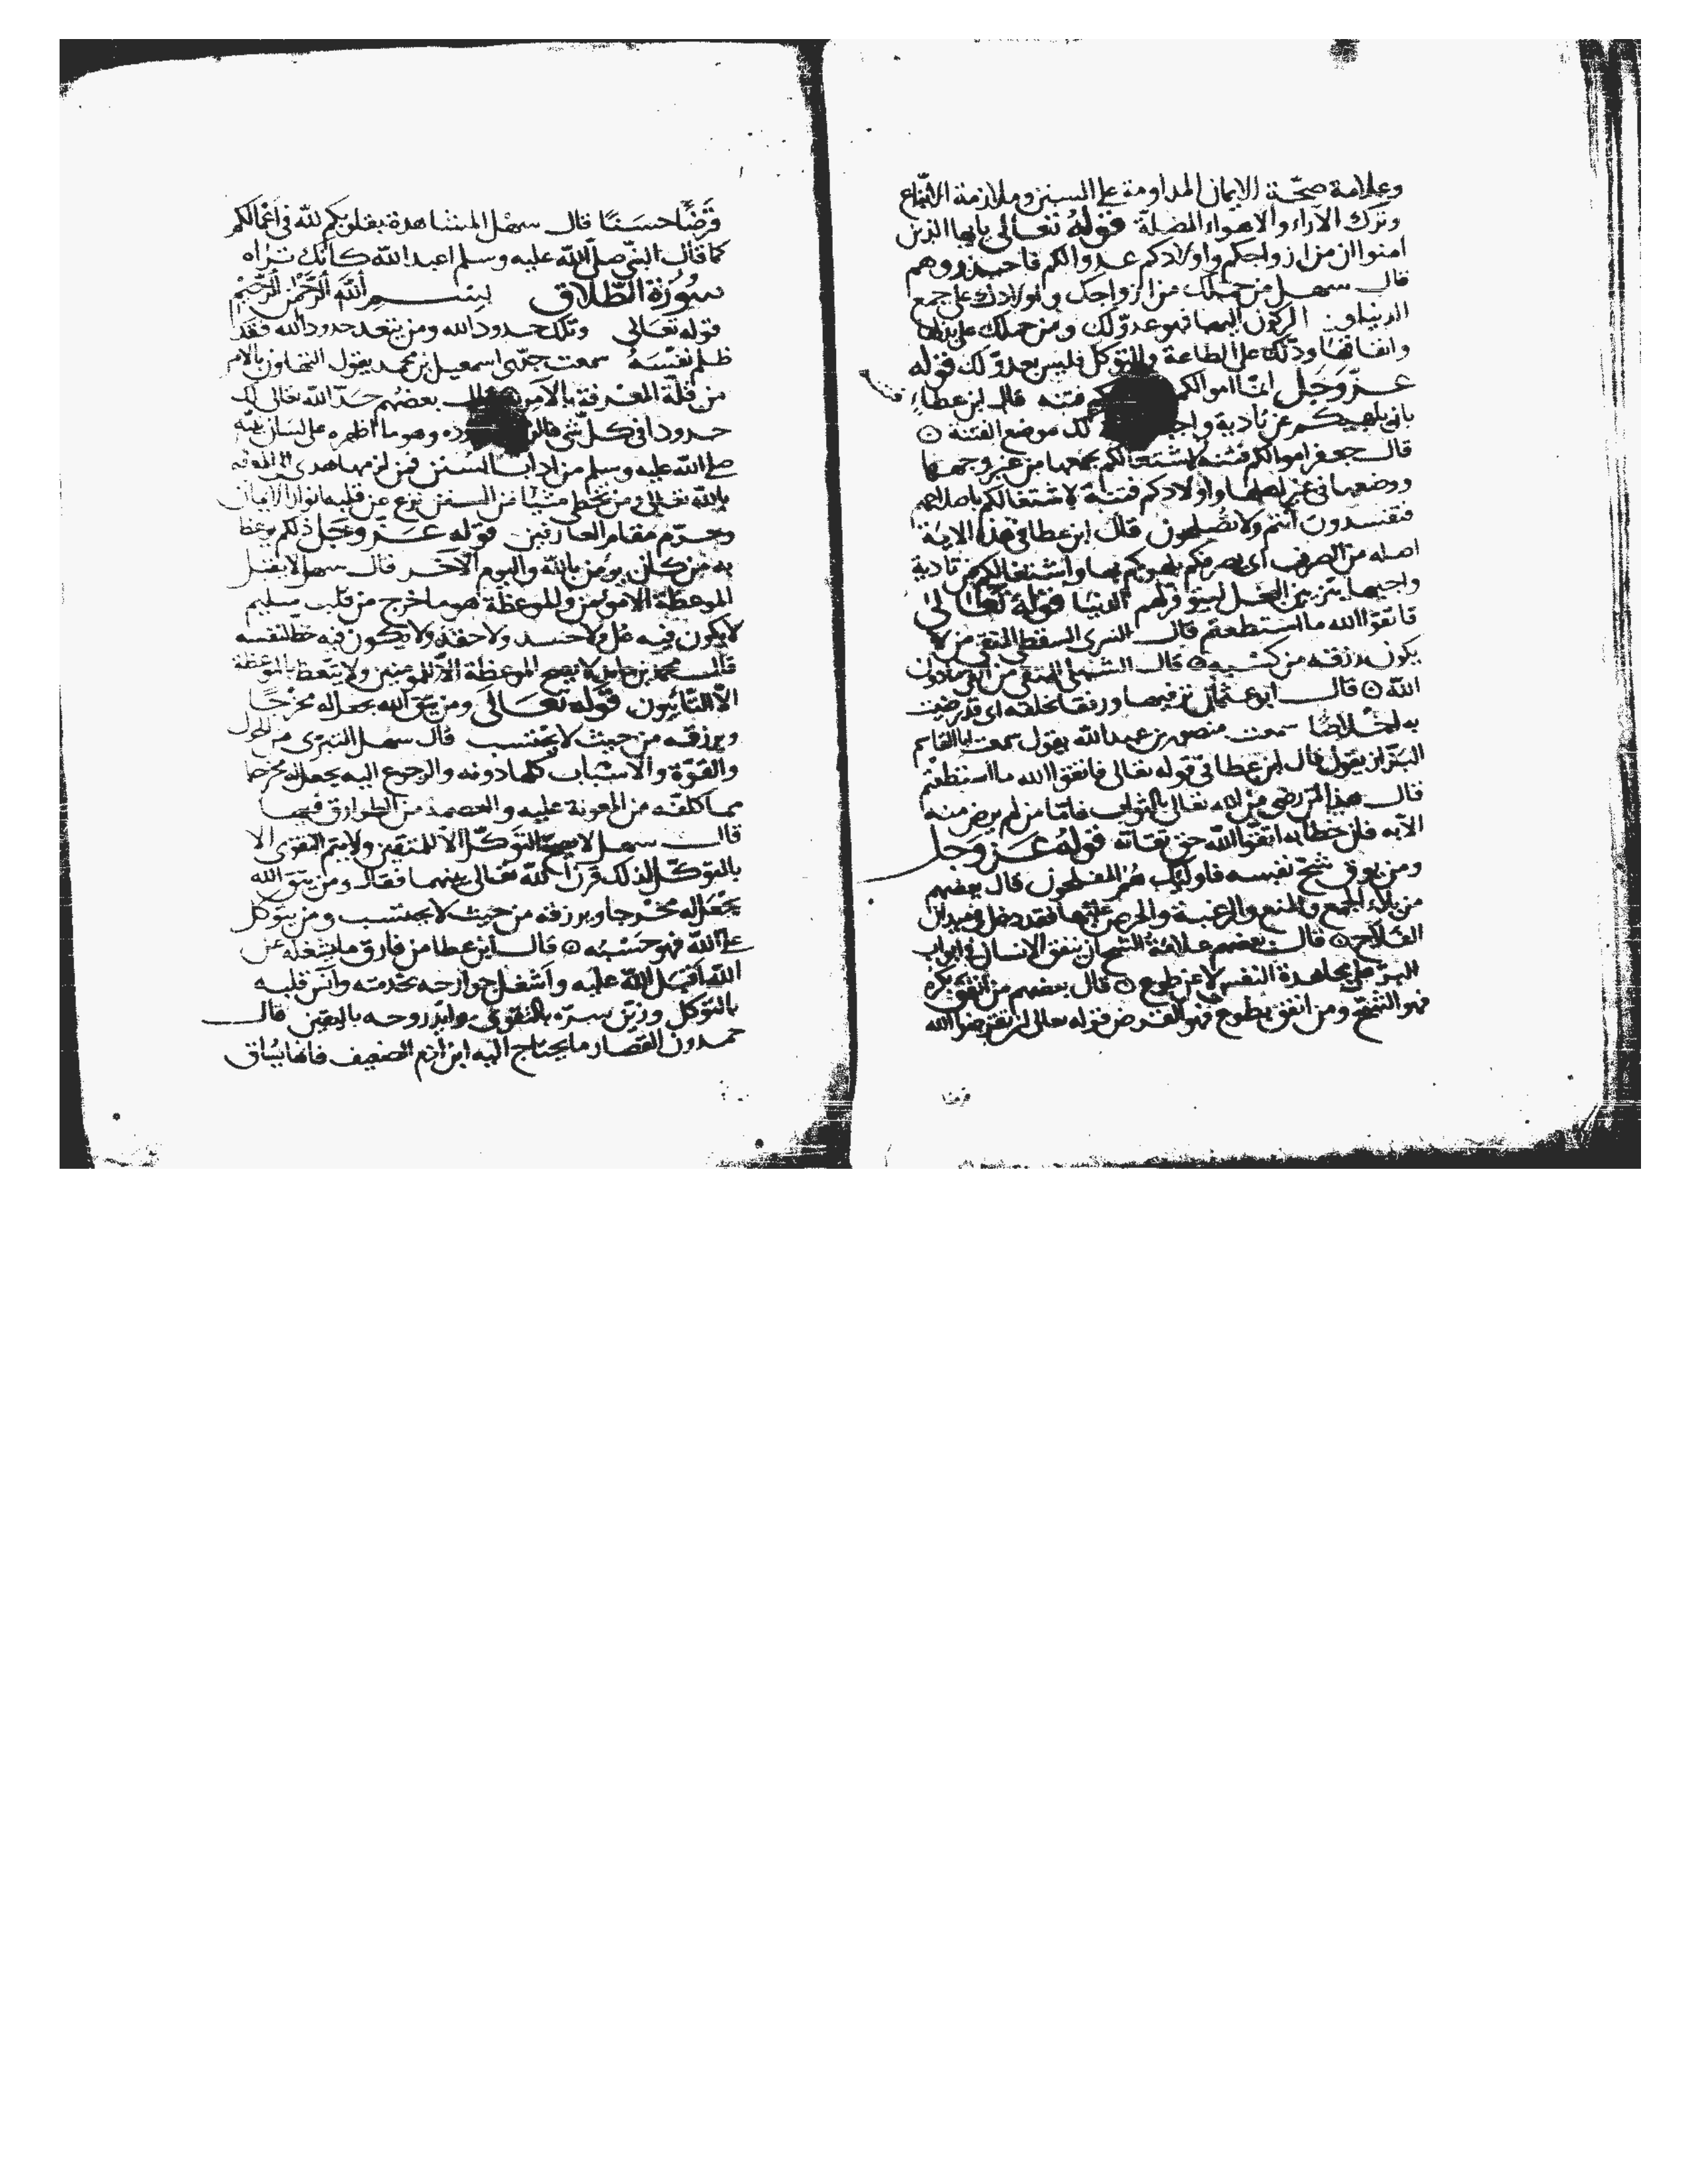 وعلامة صحّة الايمان المداومة على السنن وملازمة الاتّباع
وترك الآراء والاهواء المضلّة قوله تعالى يايها الذين
امنوا ان من ازواجكم واولادكم عدوا لكم فاحذروهم
قال سهل من حملك من ازواجك واولادك على جمع
الدنيا و الركون اليها فهو عدوّ لك ومن حملك على
وانفاقها ودلّك على الطاعة والتوكل فليس بعدوّ لك قوله
عزّ وجل انّما اموالكم فتنه قال ابن عطاء
بان يلهيكم عن تادية لك موضع الفتنة
قال جعفر اموالكم فتنه لاشتغالكم بجمعها من غير وجهها
ووضعها في غير اهلها واولادكم فتنة لاشتغالكم باصلاحهم
فتفسدون انتم ولا تصلحون قال ابن عطا في هذه الاية
اصله من الصرف اى يصرفكم بلهوكم بها واشتغالكم عن تادية
واجبها الدنيا قوله تعالى
فاتقوا الله ما استطعتم قال السرى السقطى المتقى من لا
يكون رزقه من كسبه قال الشبلى المتقى من اتقى ما دون
الله قال ابو عثمان
به سمعت منصور بن عبد الله يقول سمعت ابا القاسم
البزّاز يقول قال ابن عطا في قوله تعالى فاتقوا الله ما استطعتم
قال هذا لمن رضى من الله تعالى بالثواب فامّا من لم يرض منه
الّا به فان خطابه اتقوا الله حق تقاته قوله عزّ وجل
ومن يوق شحّ نفسه فاوليك هم المفلحون قال بعضهم
من بلاء الجمع والمنع والرغبة والحرص عليها فقد دخل في ميدان
الفلاح قال بعضهم علامة الشح ان ينفق الانسان في ابواب
البرّ على مجاهدة النفس لا عن طوع قال بعضهم من انفق بكره
فهو الشحّ ومن انفق بطوع فهو القرض قوله تعالى ان تقرضوا الله
قرضا
قرضا حسنا قال سهل المشاهدة بقلوبكم لله في اعمالكم
كما قال النبى صلى الله عليه وسلم اعبد الله كأنك تراه
سورة الطّلاق بسم الله الرّحمن الرّحيم
قوله تعالى وتلك حدود الله ومن يتعد حدود الله فقد
ظلم نفسه سمعت جدّى اسمعيل بن محمد يقول التهاون بالامر
من قلة المعرفة بالآمر قال بعضهم حدّ الله تعالى لك
حدودا في كل شى وهو ما اظهره على لسان نبيّه
صلى الله عليه وسلم من اداب السنن فمن لزمها هدى الى المعرفه
بالله تعالى ومن تخطى شيا من السنن نزع عن قلبه انوار الايمان
وحرّم مقام العارفين قوله عزّ وجل ذلكم يوعظ
به من كان يومن بالله واليوم الاخر قال سهل لا يقبل
الموعظة الا مومن والموعظة هو ما خرج من قلب سليم
لا يكون فيه غل ولا حسد ولا حقد ولا يكون فيه حظ لنفسه
قال محمد بن حامد لا يصح الموعظة الّا للمومنين ولا يتعظ بالموعظة
الّا التائبون قوله تعالى ومن يتق الله يجعل له مخرجا
ويرزقه من حيث لا يحتسب قال سهل التبرّى من الحول
والقوّة والاسباب كلها دونه والرجوع اليه يجعل له مخرجا
مما كلفه من المعونة عليه والعصمة من الطوارق فيها
قال سهل لا يصح التوكّل الّا للمتقين ولا يتم التقوى الا
بالتوكّل لذلك قرن الله تعالى بينهما فقال ومن يتق الله
يجعل له مخرجا ويرزقه من حيث لا يحتسب ومن يتوكل
على الله فهو حسبه قال ابن عطا من فارق ما يشغله عن
الله اقبل الله عليه واشغل جوارحه بخدمته وانس قلبه
بالتوكل وزيّن سرّه بالتقوى وايّد روحه باليقين قال
حمدون القصار ما يحتاج اليه ابن ادم الضعيف فانها تساق